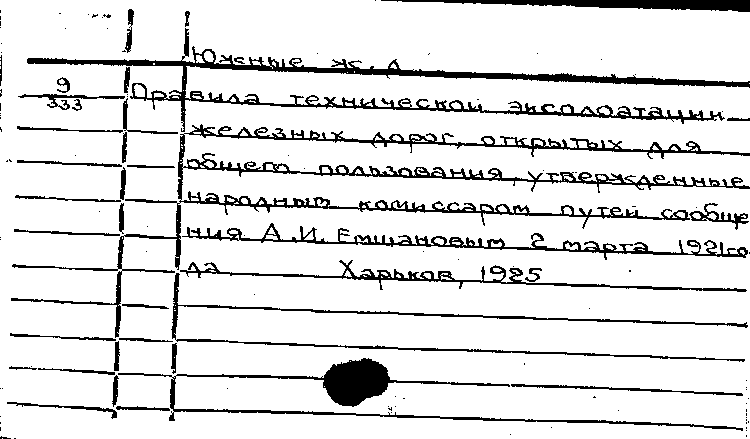 Южные ж. д.
9
333
Правила технической эксплоатации
железных дорог, открытых для
общего пользования, утвержденные
народным комиссаром путей сообще
ния А.И. Емшановым 2 марта 1921го
да Харьков, 1925